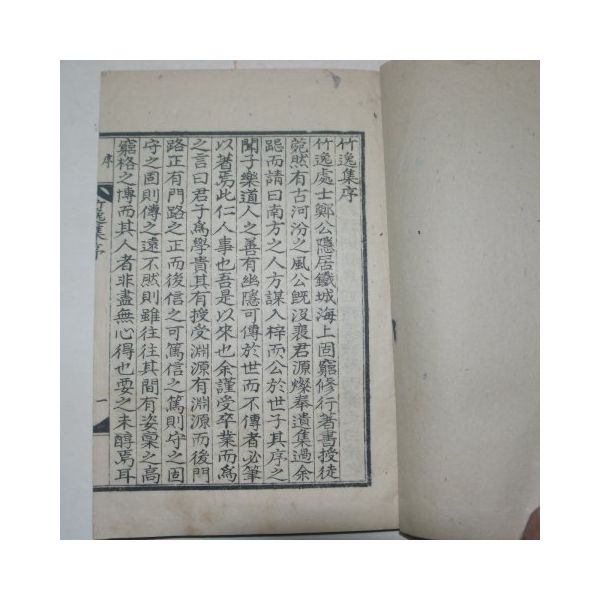 竹逸集序
竹逸處士鄭公隱居鐵城海上固窮修行著書授徒
菀然有古河汾之風公旣沒裵君源燦奉遺集過余
跽而請曰南方之人方謀入梓而公於世子其序之
聞子樂道人之善有幽隱可傳於世而不傳者必筆
以著焉此仁人事也吾是以來也余謹受卒業而爲
之言曰君子爲學貴其有授受淵源有淵源而後門
路正有門路之正而後信之可篤信之篤則守之固
守之固則傳之遠不然則雖往往其間有姿稟之高
窮格之博而其人者非盡無心得也要之未醇焉耳
竹逸集 序 一
序